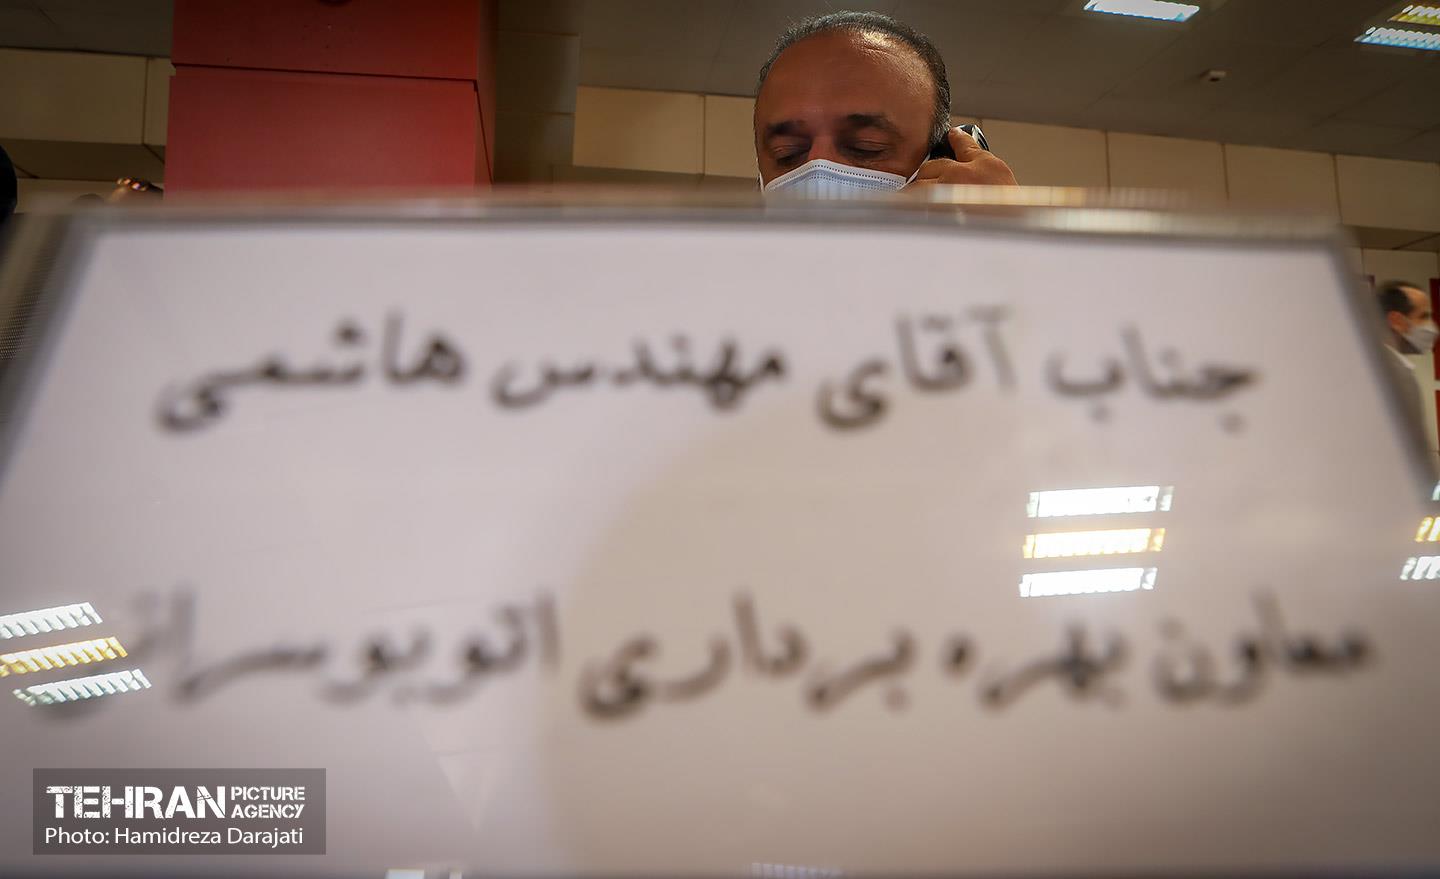 جناب آقای مهندس هاشمی
معاون بهره برداری اتوبوسرانی
TEHRAN PICTURE AGENCY
Photo: Hamidreza Darajati